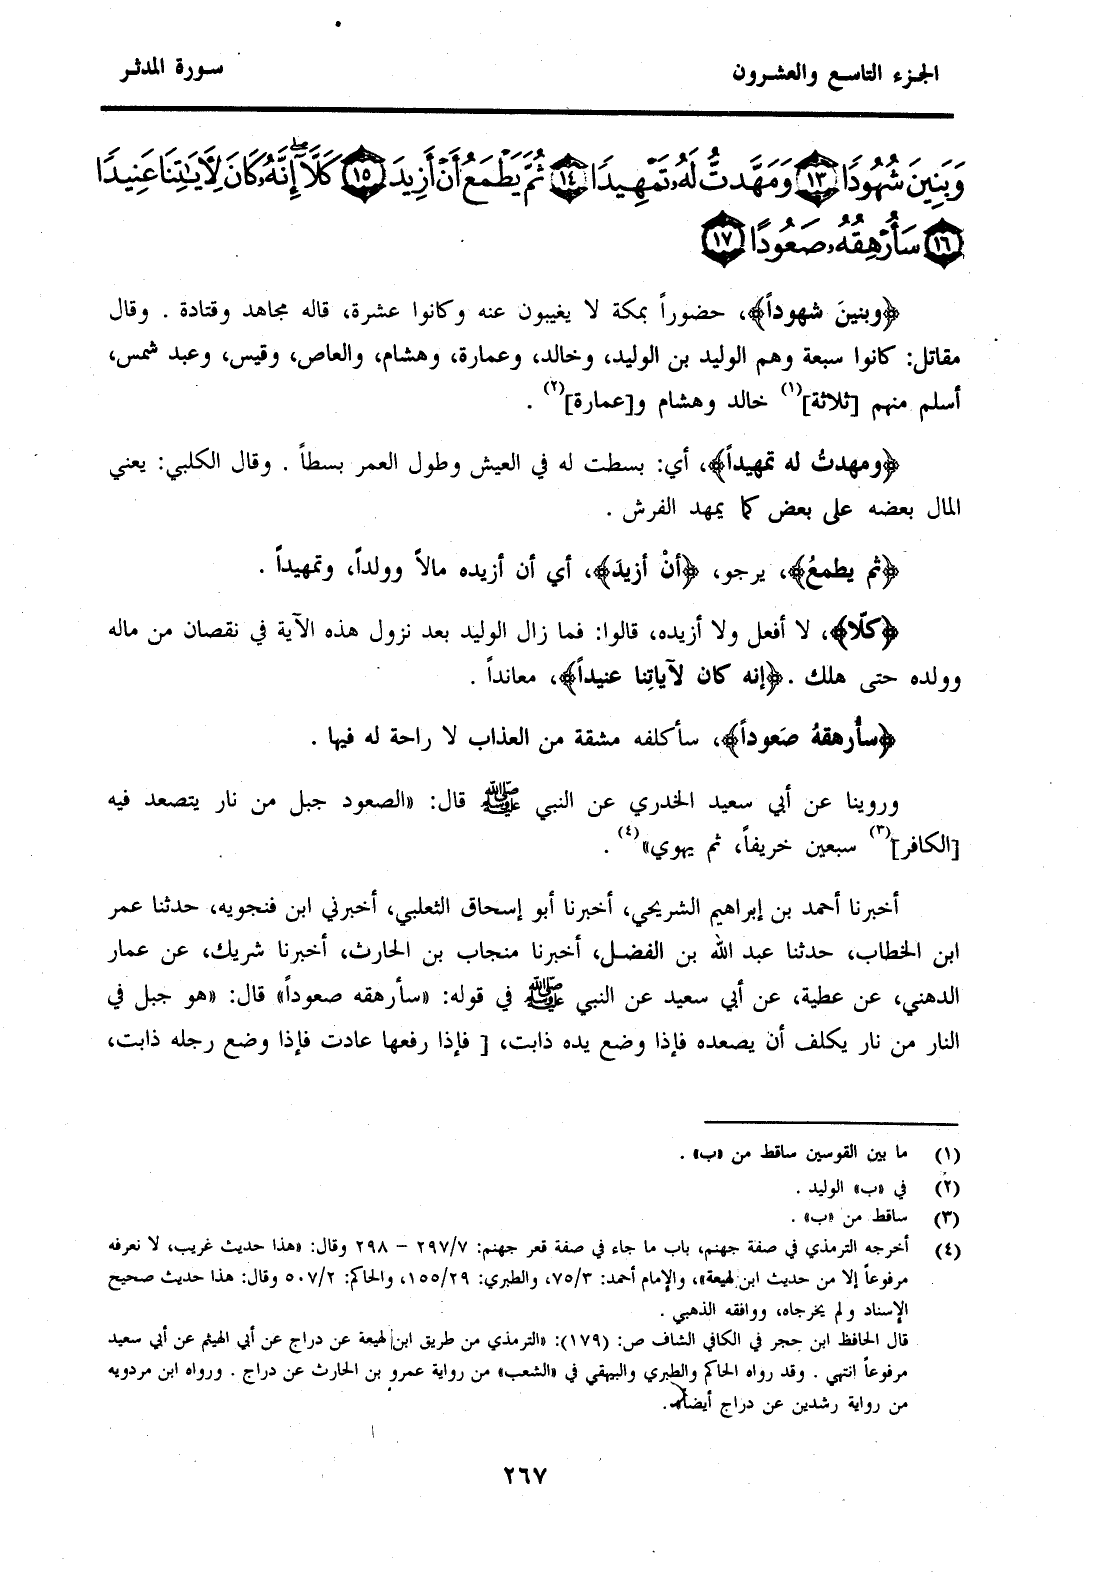 الجزء التاسع والعشرون
سورة المدثر
وَبَنِينَ شُهُودًا ١٣ وَمَهَّدتُّ لَهُۥ تَمْهِيدًا ١٤ ثُمَّ يَطْمَعُ أَنْ أَزِيدَ ١٥ كَلَّآ ۖ إِنَّهُۥ كَانَ لِأَيَٰتِنَا عَنِيدًا
١٦ سَأُرْهِقُهُۥ صَعُودًا ١٧
﴿وبنينَ شهوداً﴾، حضوراً بمكة لا يغيبون عنه وكانوا عشرة، قاله مجاهد وقتادة . وقال
مقاتل: كانوا سبعة وهم الوليد بن الوليد، وخالد، وعمارة، وهشام، والعاص، وقيس، وعبد شمس،
أسلم منهم [ثلاثة](١) خالد وهشام و[عمارة](٢) .
﴿ومهدتُ له تمهيداً﴾، أي: بسطت له في العيش وطول العمر بسطاً . وقال الكلبي: يعني
المال بعضه على بعض كما يمهد الفرش .
﴿ثم يطمعُ﴾، يرجو، ﴿أنْ أزيدَ﴾، أي أن أزيده مالاً وولداً، وتمهيداً .
﴿كلّا﴾، لا أفعل ولا أزيده، قالوا: فما زال الوليد بعد نزول هذه الآية في نقصان من ماله
وولده حتى هلك . ﴿إنه كان لآياتِنا عنيداً﴾، معانداً .
﴿سأرهقهُ صَعوداً﴾، سأكلفه مشقة من العذاب لا راحة له فيها .
وروينا عن أبي سعيد الخدري عن النبي ﷺ قال: «الصعود جبل من نار يتصعد فيه
[الكافر](٣) سبعين خريفاً، ثم يهوي»(٤) .
أخبرنا أحمد بن إبراهيم الشريحي، أخبرنا أبو إسحاق الثعلبي، أخبرني ابن فنجويه، حدثنا عمر
ابن الخطاب، حدثنا عبد الله بن الفضل، أخبرنا منجاب بن الحارث، أخبرنا شريك، عن عمار
الدهني، عن عطية، عن أبي سعيد عن النبي ﷺ في قوله: «سأرهقه صعوداً» قال: «هو جبل في
النار من نار يكلف أن يصعده فإذا وضع يده ذابت، [ فإذا رفعها عادت فإذا وضع رجله ذابت،
(١) ما بين القوسين ساقط من «ب» .
(٢) في «ب» الوليد .
(٣) ساقط من «ب» .
(٤) أخرجه الترمذي في صفة جهنم، باب ما جاء في صفة قعر جهنم: ٢٩٧/٧ – ٢٩٨ وقال: «هذا حديث غريب، لا نعرفه
مرفوعاً إلا من حديث ابن لهيعة»، والإمام أحمد: ٧٥/٣، والطبري: ١٥٥/٢٩، والحاكم: ٥٠٧/٢ وقال: هذا حديث صحيح
الإسناد ولم يخرجاه، ووافقه الذهبي .
قال الحافظ ابن حجر في الكافي الشاف ص: (١٧٩): «الترمذي من طريق ابن لهيعة عن دراج عن أبي الهيثم عن أبي سعيد
مرفوعاً انتهي . وقد رواه الحاكم والطبري والبيهقي في «الشعب» من رواية عمرو بن الحارث عن دراج . ورواه ابن مردويه
من رواية رشدين عن دراج أيضاً».
٢٦٧